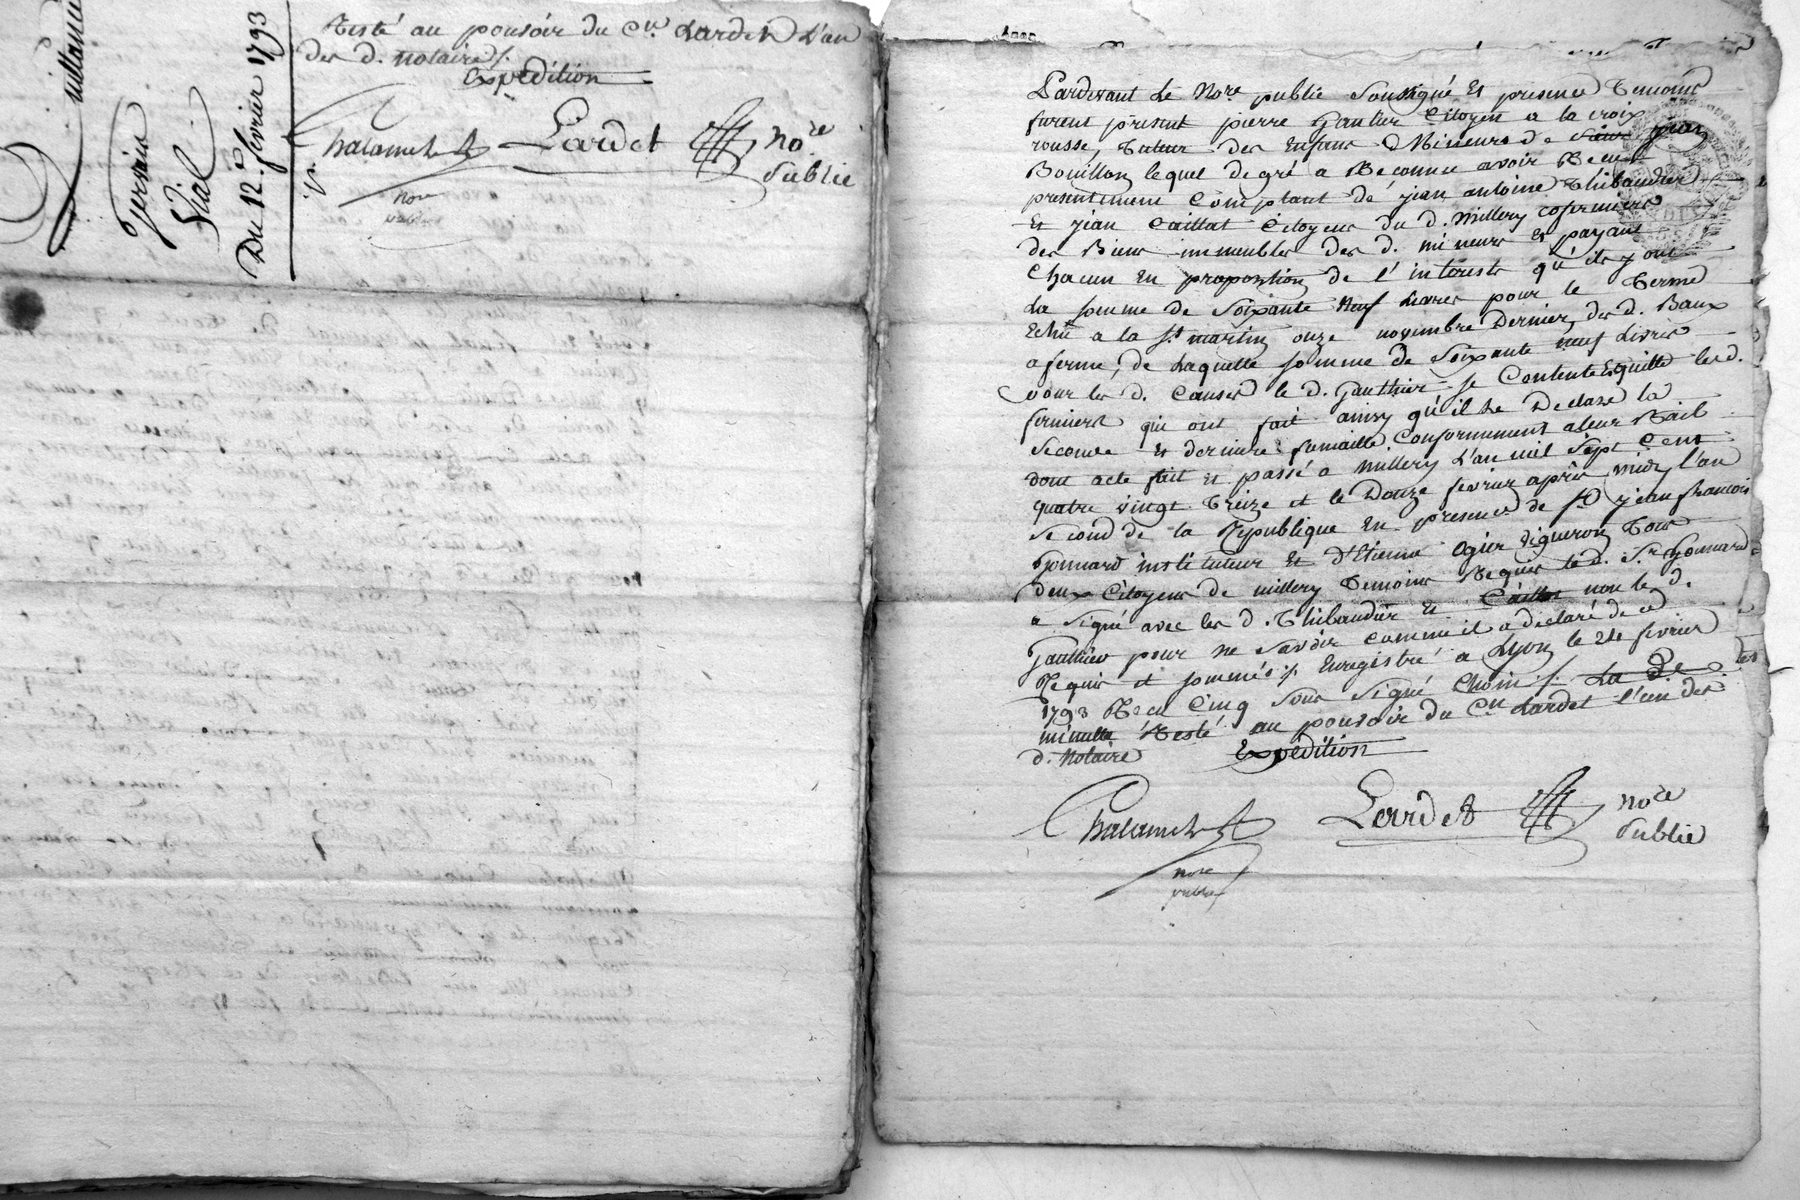 Quittance
Gervais
Vial
Du 12e. fevrier 1793
Resté au pouvoir du Cn. Lardet L'un
des d. notaires /.
Expedition
Chalamel Lardet nore
nore Publie
public
Pardevant Le Nore. public Soussigné Et presence Temoins
furent present pierre Gautier Citoyen a la croix
rousse, Tuteur des Enfans Mineurs de jean
Bouillon lequel de gré a Reconnu avoir Recu
presentement Comptant de jean antoine Thibaudier
Et jean Caillat Citoyens du d. Millery cofermiers
des Biens immeubles des d. mineurs Et payant
Chacun En proportion de l'interests qu'ils y ont
La somme de Soixante Neuf Livres pour le Terme
Echu a la St. martin onze novembre Dernier, des d. Baux
a ferme, de Laquelle somme de Soixante neuf Livres
pour les d. Causes le d. Gauthier se Contente Et quitte les d.
fermiers qui ont fait ainsy qu'il se Declare la
Seconde Et derniere conformement a leur Bail
dont acte fait Et passé a Millery L'an mil Sept Cent
quatre vingt Treize et le Douze fevrier après midy l'an
Second de la Republique En presence de Sr jean francois
Gonnard instituteur Et d'Etienne Ogier Vigneron Tous
deux Citoyens de millery Temoins Requis le d. Sr. Gonnard
a Signé avec les d. Thibaudier Et Caillat non le d.
Gauthier pour ne savoir comme il a declaré de ce
Requis et sommés /. Enregistré a Lyon le 24 fevrier
1793 Recu Cinq Sous Signé Choin /. La
minutte Resté au pouvoir du Cn Lardet l'un des
d. Notaire Expédition
Chalamel Lardet nore
nore Publie
public